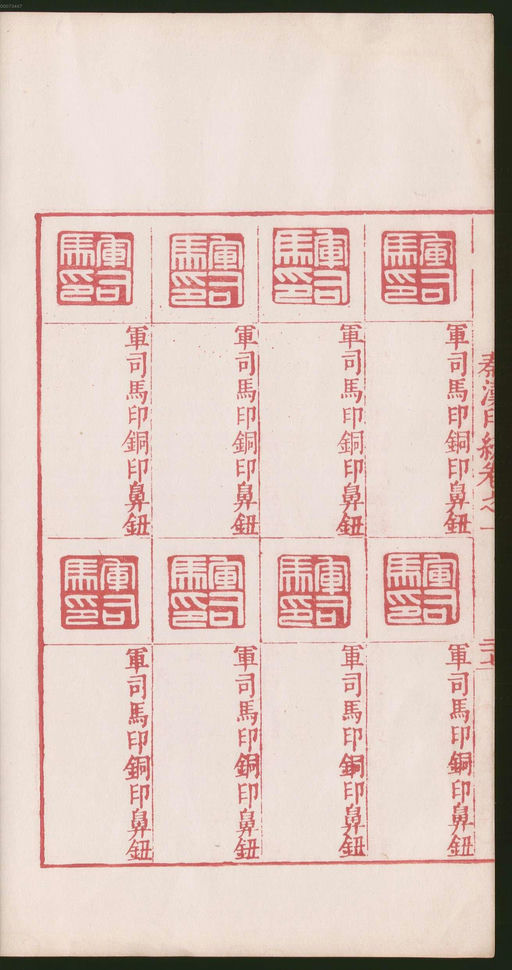 00073447
秦漢印統卷之一
二十七
軍司馬印
軍司馬印銅印鼻鈕
軍司馬印
軍司馬印銅印鼻鈕
軍司馬印
軍司馬印銅印鼻鈕
軍司馬印
軍司馬印銅印鼻鈕
軍司馬印
軍司馬印銅印鼻鈕
軍司馬印
軍司馬印銅印鼻鈕
軍司馬印
軍司馬印銅印鼻鈕
軍司馬印
軍司馬印銅印鼻鈕